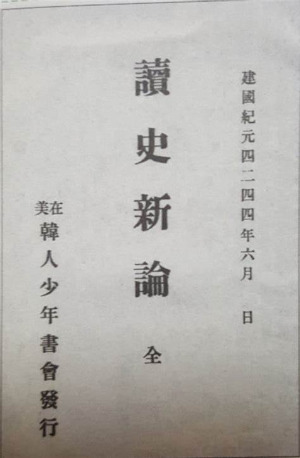 建國紀元四二四四年六月　日
讀史新論　全
在美韓人少年書會發行